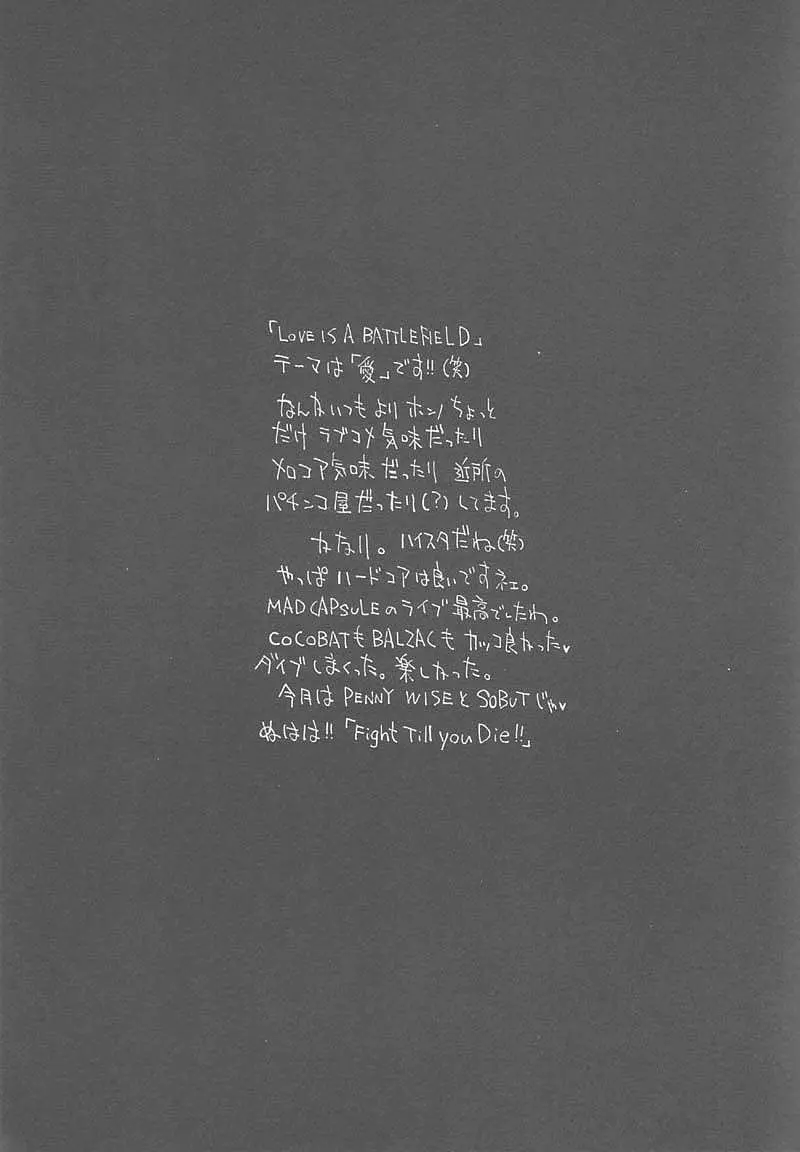 「LOVE IS A BATTLEFIELD」
テーマは「愛」です!!(笑)
なんかいつもよりホンノちょっと
だけラブコメ気味だったり
メロコア気味だったり近所の
パチンコ屋だったり(?)してます。
かなり。ハイスタだね(笑)
やっぱハードコアは良いですネェ。
MAD CAPSULEのライブ最高でしたわ。
COCOBATもBALZACもカッコ良かった♥
ダイブしまくった。楽しかった。
今月はPENNY WISEとSOBUTじゃ♥
ぬはは!!「Fight Till you Die!!」